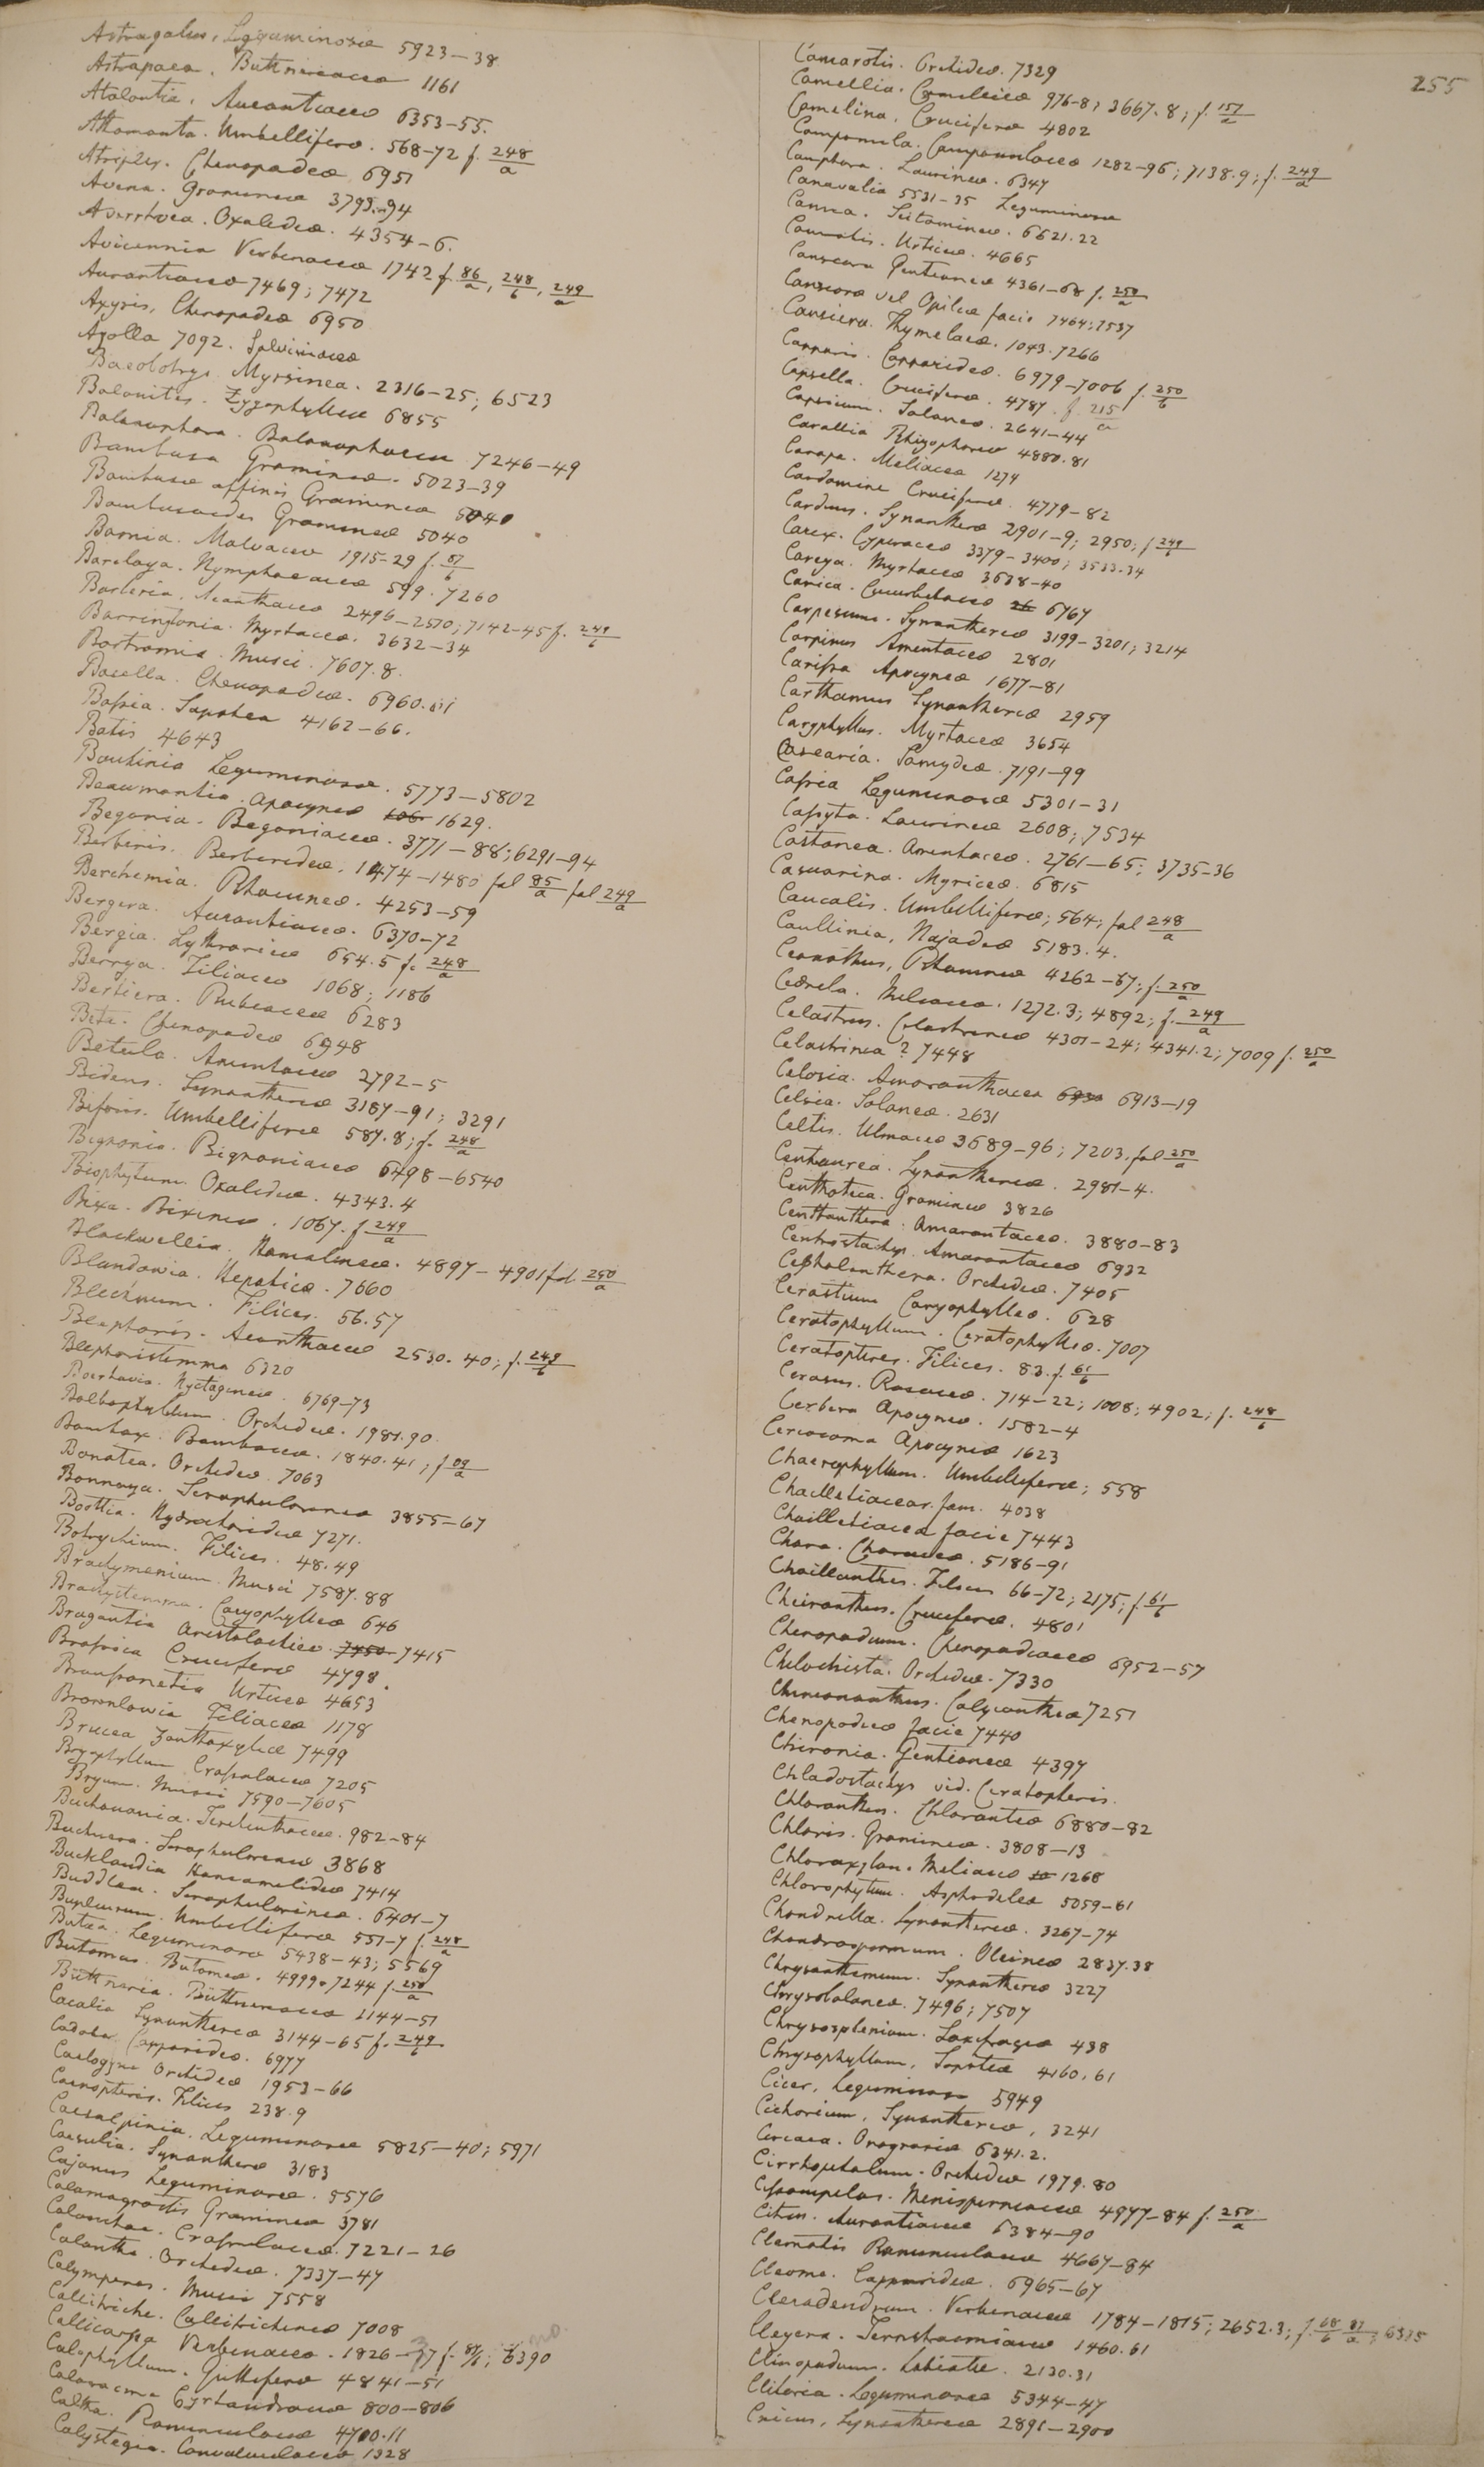 255
Astragalus, Leguminosæ 5923–38
Astrapaea. Buttneriaceæ 1161
Atalantia. Aurantiaceæ 6353–55.
Athamanta. Umbelliferæ. 568–72 f. 248/a
Atriplex. Chenopodeæ 6951
Avena. Gramineæ 3793–94
Averrhoea. Oxalideæ. 4354–6.
Avicennia Verbenaceæ 1742 f. 86/a, 248/b, 249/a
Aurantiaceæ 7469; 7472
Axyris, Chenopodeæ 6950
Azolla 7092. Salviniaceæ
Baeobotrys Myrsineæ. 2316–25; 6523
Balanites. Zygophylleæ 6855
Balanophora. Balanophoreæ 7246–49
Bambusa Gramineæ. 5023–39
Bambusæ affinis Gramineæ 5040
Bambusoides Gramineæ 5040
Barnia. Malvaceæ 1915–29 f. 87/b
Barclaya. Nymphaeaceæ 599. 7260
Barleria. Acanthaceæ 2496–2570; 7142–45 f. 249/b
Barringtonia. Myrtaceæ. 3632–34
Bartramia. Musci. 7607.8.
Basella. Chenopodeæ. 6960.61
Bassia. Sapoteæ 4162–66.
Batis 4643
Bauhinia Leguminosæ. 5773–5802
Beaumontia. Apocyneæ 1629.
Begonia. Begoniaceæ. 3771–88; 6291–94
Berberis. Berberideæ. 1474–1480 fol 85/a fol 249/a
Berchemia. Rhamneæ. 4253–59
Bergera. Aurantiaceæ. 6370–72
Bergia. Lythrarieæ 654.5 f. 248/a
Berrya. Tiliaceæ 1068; 1186
Bertiera. Rubiaceæ 6283
Beta. Chenopodeæ 6948
Betula. Amentaceæ 2792–5
Bidens. Synanthereæ 3187–91; 3291
Biforis. Umbelliferæ 587.8; f. 248/a
Bignonia. Bignoniaceæ 6498–6540
Biophytum. Oxalideæ. 4343.4
Bixa. Bixineæ. 1067. f. 249/a
Blackwellia. Homalineæ. 4897–4901 fol 250/a
Blandowia. Hepaticæ. 7660
Blechnum. Filices. 56.57
Blepharis. Acanthaceæ 2530.40; f. 249/b
Blepharistemma 6320
Boerhavia. Nyctagineæ. 6769–73
Bolbophyllum. Orchideæ. 1981.90.
Bombax. Bombaceæ. 1840.41; f 89/a
Bonatea. Orchideæ. 7063
Bonnaya. Scrophularineæ 3855–67
Boottia. Hydrocharideæ 7271.
Botrychium. Filices. 48.49
Brachymenium. Musci 7587.88
Brachystemma. Caryophylleæ 646
Bragantia Aristolochieæ 7450 7415
Brassica Cruciferæ 4798.
Broussonetia Urticeæ 4653
Brownlowia Tiliaceæ 1178
Brucea Zanthoxyleæ 7499
Bryophyllum Crassulaceæ 7205
Bryum. Musci 7590–7605
Buchanania. Terebinthaceæ. 982–84
Buchnera. Scrophularineæ 3868
Bucklandia Hamamelideæ 7414
Buddlea. Scrophularineæ. 6401–7
Bupleurum. Umbelliferæ 551–7 f. 248/a
Butea. Leguminosæ 5438–43; 5569
Butomus. Butomeæ. 4999. 7244 f. 250/a
Büttneria. Büttneriaceæ 1144–51
Cacalia Synanthereæ 3144–65 f. 249/b
Cadaba Capparideæ. 6977
Caelogyne Orchideæ 1953–66
Caenopteris. Filices 238.9
Caesalpinia. Leguminosæ 5825–40; 5971
Caesulia. Synanthereæ 3183
Cajanus Leguminosæ. 5576
Calamagrostis Gramineæ 3781
Calanchoe. Crassulaceæ. 7221–26
Calanthe. Orchideæ. 7337–47
Calymperes. Musci 7558
Callitriche. Callitrichineæ 7008
Callicarpa Verbenaceæ. 1826–37 f. 87/b; 6390
Calophyllum. Guttiferæ 4841–51
Calosacme Cyrtandraceæ 800–806
Caltha. Ranunculaceæ 4710.11
Calystegia. Convolvulaceæ 1328
Camarotis. Orchideæ. 7329
Camellia. Camellieæ 976–8; 3667.8; f. 157/a
Camelina. Cruciferæ 4802
Campanula. Campanulaceæ 1282–96; 7138.9; f. 249/a
Camphora. Laurineæ. 6347
Canavalia 5531–35 Leguminosæ
Canna. Scitamineæ. 6621.22
Cannabis. Urticeæ. 4665
Canscora Gentianeæ 4361–68 f. 250/a
Canscora vel Opiliæ facie 7464; 7537
Cansiera. Thymelaeæ. 1043. 7266
Capparis. Capparideæ. 6979–7006 f. 250/b
Capsella. Cruciferæ. 4787. f. 215/a
Capsicum. Solaneæ. 2641–44
Carallia Rhizophoreæ 4880.81
Carapa. Meliaceæ 1274
Cardamine Cruciferæ. 4779–82
Carduus. Synanthereæ 2901–9; 2950; f 249/b
Carex. Cyperaceæ 3379–3400; 3533.34
Careya. Myrtaceæ 3638–40
Carica. Cucurbitaceæ 6767
Carpesium. Synanthereæ 3199–3201; 3214
Carpinus Amentaceæ 2801
Carissa Apocyneæ 1677–81
Carthamus Synanthereæ 2959
Caryphyllus. Myrtaceæ 3654
Casearia. Samydeæ. 7191–99
Cassia Leguminosæ 5301–31
Cassyta. Laurineæ 2608; 7534
Castanea. Amentaceæ. 2761–65; 3735–36
Casuarina. Myriceæ. 6815
Caucalis. Umbelliferæ; 564; fol 248/a
Caullinia. Najadeæ 5183.4.
Ceanothus, Rhamneæ 4262–67; f. 250/a
Cedrela. Meliaceæ. 1272.3; 4892; f. 249/a
Celastrus. Celastrineæ 4301–24; 4341.2; 7009 f. 250/a
Celastrinea? 7448
Celosia. Amaranthaceæ 6930 6913–19
Celsia. Solaneæ. 2631
Celtis. Ulmaceæ 3689–96; 7203. fol 250/a
Centaurea. Synanthereæ. 2981–4.
Centhoteca. Gramineæ 3826
Centranthera. Amarantaceæ. 3880–83
Centrostachys. Amarantaceæ 6932
Cephalanthera. Orchideæ. 7405
Cerastium Caryophylleæ. 628
Ceratophyllum. Ceratophylleæ. 7007
Ceratopteris. Filices. 83. f. 61/b
Cerasus. Rosaceæ. 714–22; 1008; 4902; f. 248/b
Cerbera Apocyneæ. 1582–4
Cercocoma Apocyneæ 1623
Chaerophyllum. Umbelliferæ; 558
Chailletiacear. fam. 4038
Chailletiacea facie 7443
Chara. Characeæ. 5186–91
Cheilanthes. Filices 66–72; 2175; f. 61/b
Cheiranthus. Cruciferæ. 4801
Chenopodium. Chenopodiaceæ 6952–57
Chilochista. Orchideæ. 7330
Chimonanthus. Calycantheæ 7251
Chenopodeæ facie 7440
Chironia. Gentianeæ 4397
Chladostachys vid. Ceratopteris.
Chloranthus. Chlorantheæ 6880–82
Chloris. Gramineæ. 3808–13
Chloroxylon. Meliaceæ 1268
Chlorophytum. Asphodeleæ 5059–61
Chondrilla. Synanthereæ. 3267–74
Chondrospermum. Oleineæ 2837.38
Chrysanthemum. Synanthereæ 3227
Chrysobalaneæ. 7496; 7507
Chrysosplenium. Saxifrageæ 438
Chrysophyllum. Sapoteæ 4160.61
Cicer, Leguminosæ 5949
Cichorium. Synanthereæ. 3241
Circaea. Onagrariæ 6341.2.
Cirrhopetalum. Orchideæ 1979.80
Cissampelos. Menispermaceæ 4977–84 f. 250/a
Citrus. Aurantiaceæ 6384–90
Clematis Ranunculaceæ 4667–84
Cleome. Capparideæ. 6965–67
Clerodendrum. Verbenaceæ 1784–1815; 2652.3; f. 68/b 87/a; 6315
Cleyera. Ternstroemiaceæ 1460.61
Clinopodium. Labiatæ. 2130.31
Clitoria. Leguminosæ 5344–47
Cnicus, Synanthereæ 2891–2900